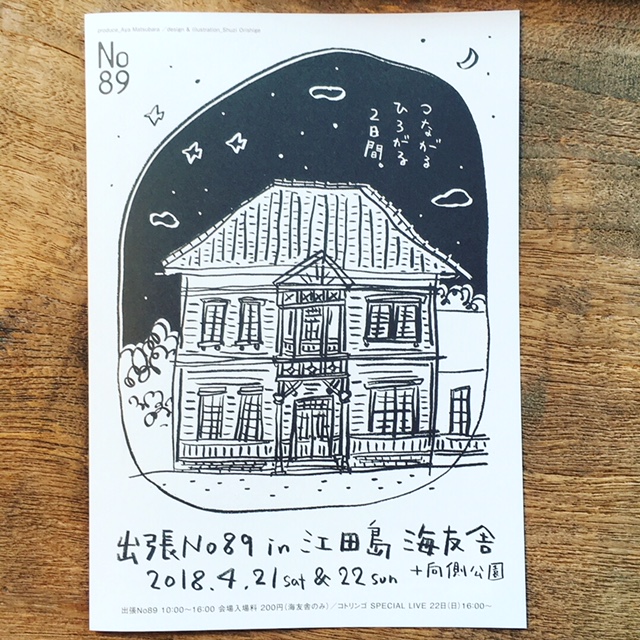 produce, Aya Matsubara / design & illustration, Shuri Orishige
No
89
つながる
ひろがる
2日間。
出張No89 in 江田島 海友舎
2018.4.21 sat & 22 sun +向側公園
出張No89 10:00〜16:00 会場入場料 200円(海友舎のみ)/コトリンゴ SPECIAL LIVE 22日(日)16:00〜